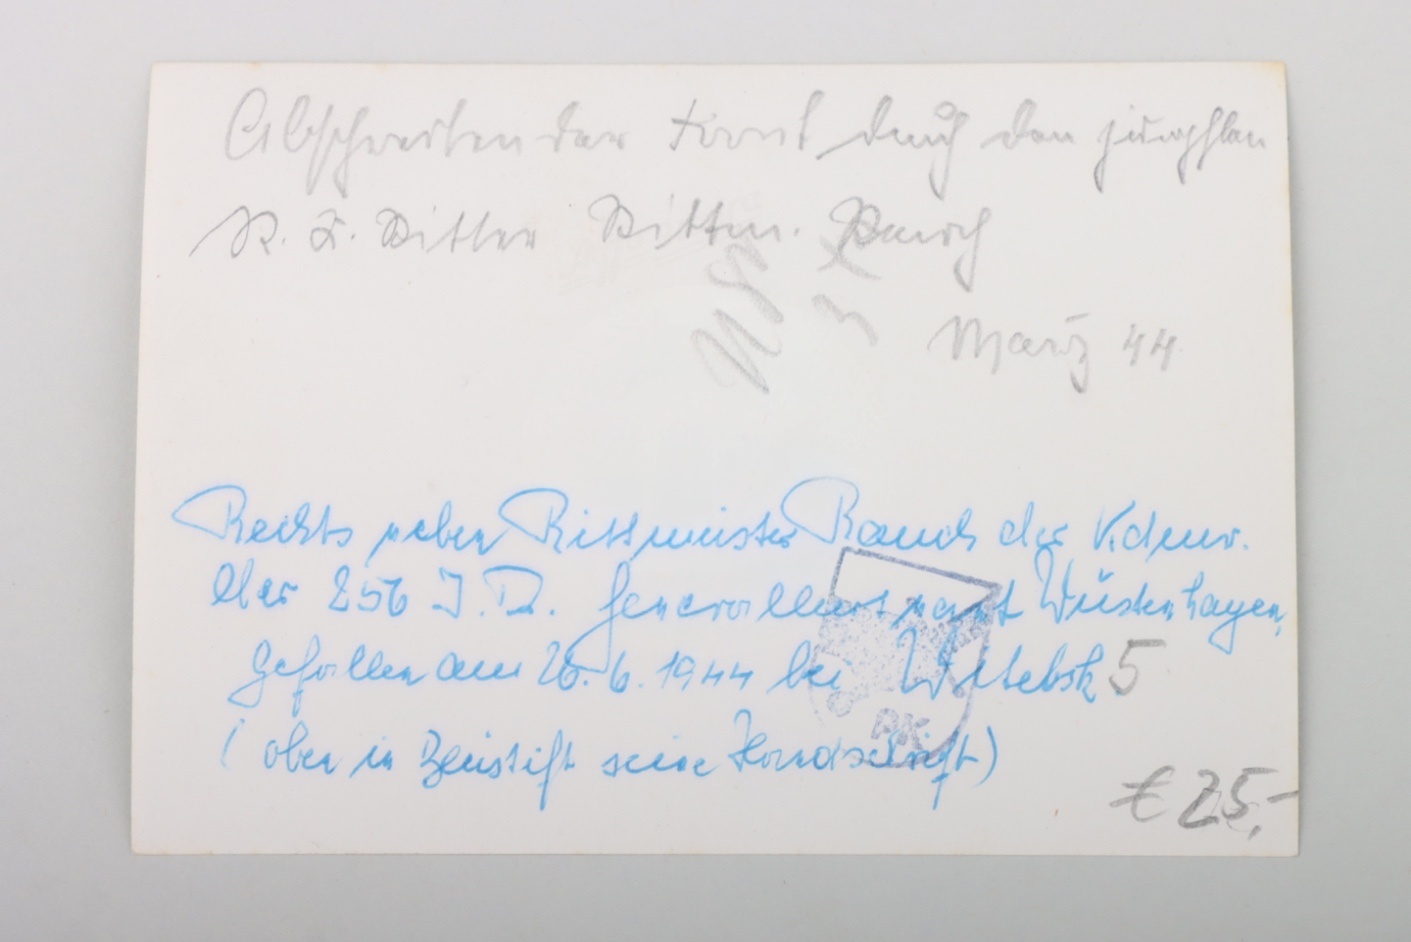 Abschreiten der Front durch den jüngsten
R. K. Ritter Rittm. Rauch
März 44
Rechts neben Rittmeister Rauch der Kdeur.
der 256 I.D. Generalleutnant Wüstenhagen,
gefallen am 26.6.1944 bei Witebsk 5
(oben in Bleistift seine Handschrift)
PK
€ 25,-